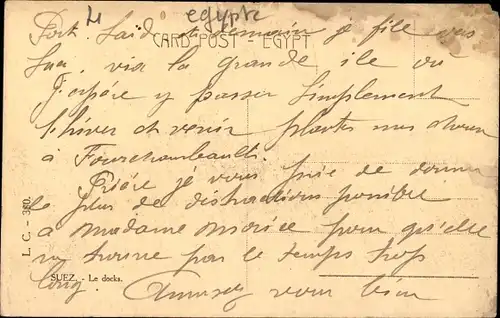 M
egypte
CARD POST - EGYPT
Port Saïd et demain je file vers
Suez via la grande ile où
J'espère y passer Simplement
l'hiver et venir planter mes choux
à Fourchambault.
Prière je vous prie de donner
le plus de distractions possible
à Madame Morice pour qu'elle
ny trouve pas le temps trop
long. Amusez vous bien
L. C. - 380.
SUEZ. - Le docks.